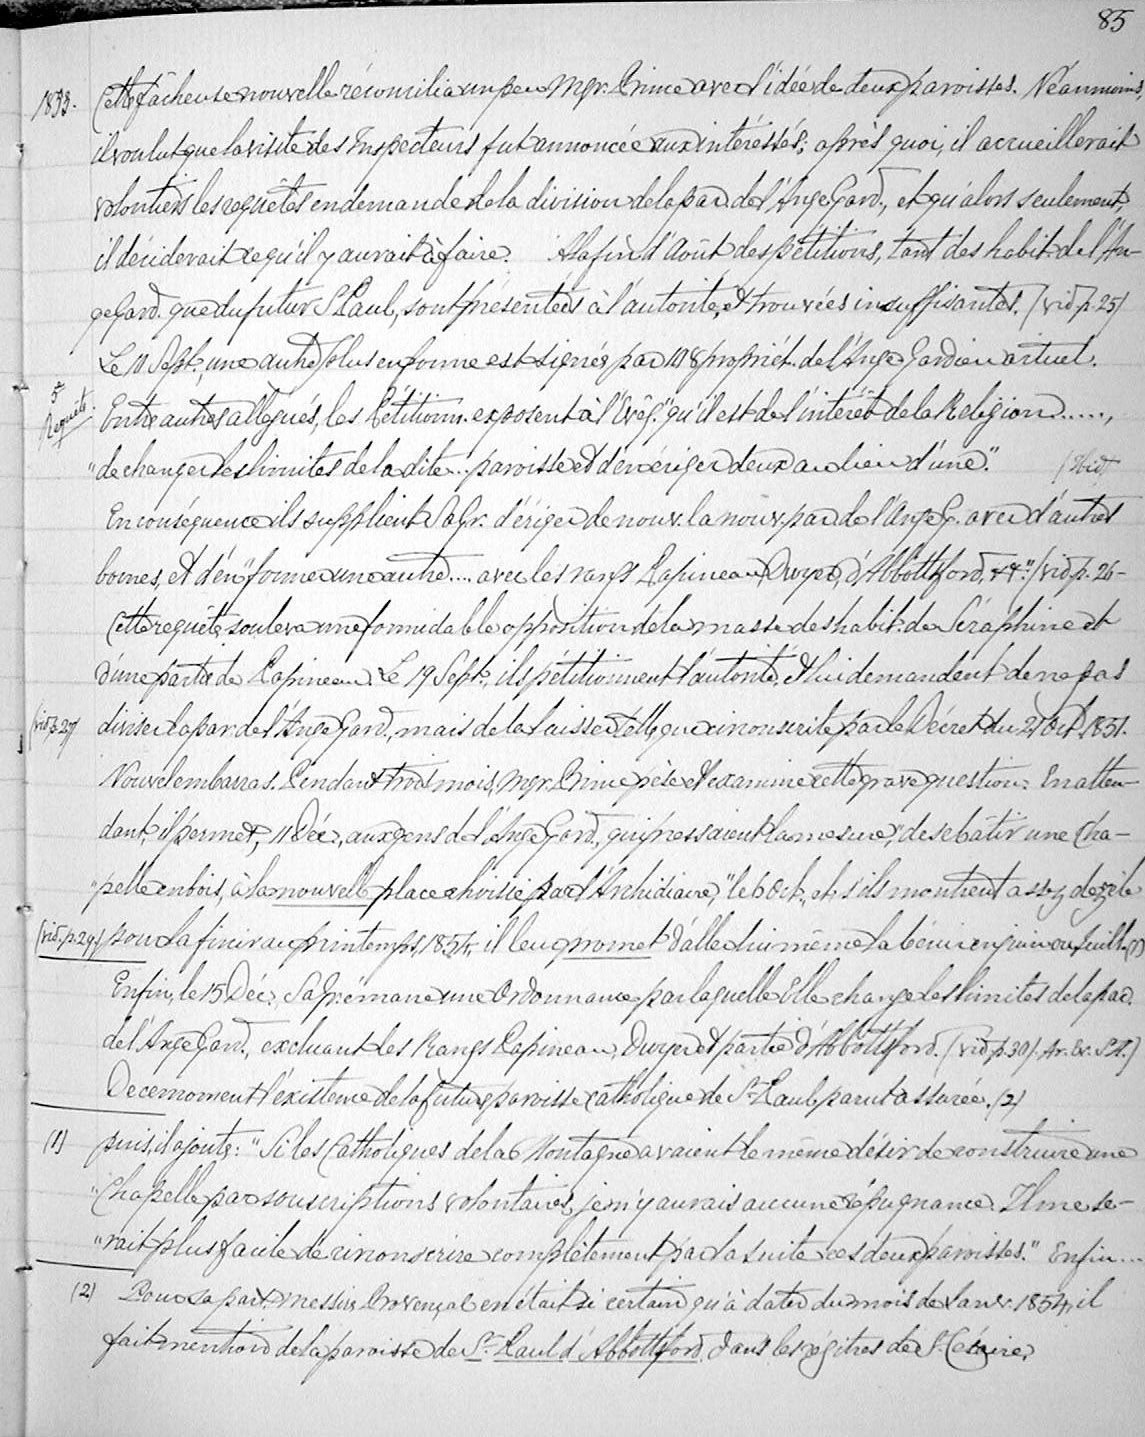 85
1853. Cette fâcheuse nouvelle réconcilia un peu Mgr. Prince avec l'idée de deux paroisses. Néanmoins,
il voulut que la visite des Inspecteurs fut annoncée aux intéressés; après quoi, il accueillerait
volontiers les requêtes en demande de la division de la par. de l'Ange Gard., et qu'alors seulement,
il déciderait ce qu'il y aurait à faire. A la fin d'Août des pétitions, tant des habit. de l'An-
ge Gard. que du futur St Paul, sont présentées à l'autorité, et trouvées insuffisantes. (vid. p. 25)
Le 11 Sept., une autre plus en forme est signée par 108 propriét. de l'Ange Gardien actuel.
5 Requête. Entre autres allégués, les Pétitionn. exposent à l'Evêq. "qu'il est de l'intérêt de la Religion.....,
"de changer les limites de la dite... paroisse et d'en ériger deux au lieu d'une." (Ibid)
En conséquence ils supplient Sa Gr. d'ériger de nouv. la nouv. par. de l'Ange G. avec d'autres
bornes, et d'en "former une autre.... avec les rangs Papineau, Dwyer, d'Abbottsford, &&." (vid p. 26-
Cette requête souleva une formidable opposition de la masse des habit. de Séraphine et
d'une partie de Papineau. Le 19 Sept., ils pétitionnent l'autorité, et lui demandent de ne pas
(vid. p. 27) diviser la par. de l'Ange Gard., mais de la laisser telle que circonscrite par le Décret du 21 Oct. 1851.
Nouvel embarras. Pendant trois mois, Mgr. Prince pèse et examine cette grave question. En atten-
dant, il permet, 11 Déc., aux gens de l'Ange Gard., qui pressaient la mesure, "de se bâtir une Cha-
"pelle en bois, à la nouvelle place choisie par l'Archidiacre," le 6 Oct., et s'ils montrent assez de zèle
(vid. p. 29) pour la finir au printemps, 1854, il leur promet d'aller lui même la bénir en juin ou juillt. (1)
Enfin, le 15 Déc., Sa Gr. émane une Ordonnance par laquelle Elle change les limites de la par.
de l'Ange Gard., excluant les Rangs Papineau, Dwyer et partie d'Abbottsford. (vid p. 30). Ar. Ev. S. H.)
De ce moment l'existence de la future paroisse catholique de St. Paul parut assurée. (2)
(1) puis, il ajoute: "Si les Catholiques de la Montagne avaient le même désir de construire une
"Chapelle par souscriptions volontaires, je n'y aurais aucune répugnance. Il me se-
"rait plus facile de circonscrire complètement par la suite ces deux paroisses." Enfin....
(2) Pour sa part, messire Provençal en était si certain qu'à dater du mois de Janv. 1854, il
fait mention de la paroisse de St. Paul d'Abbottsford, dans les régitres de St. Césaire.